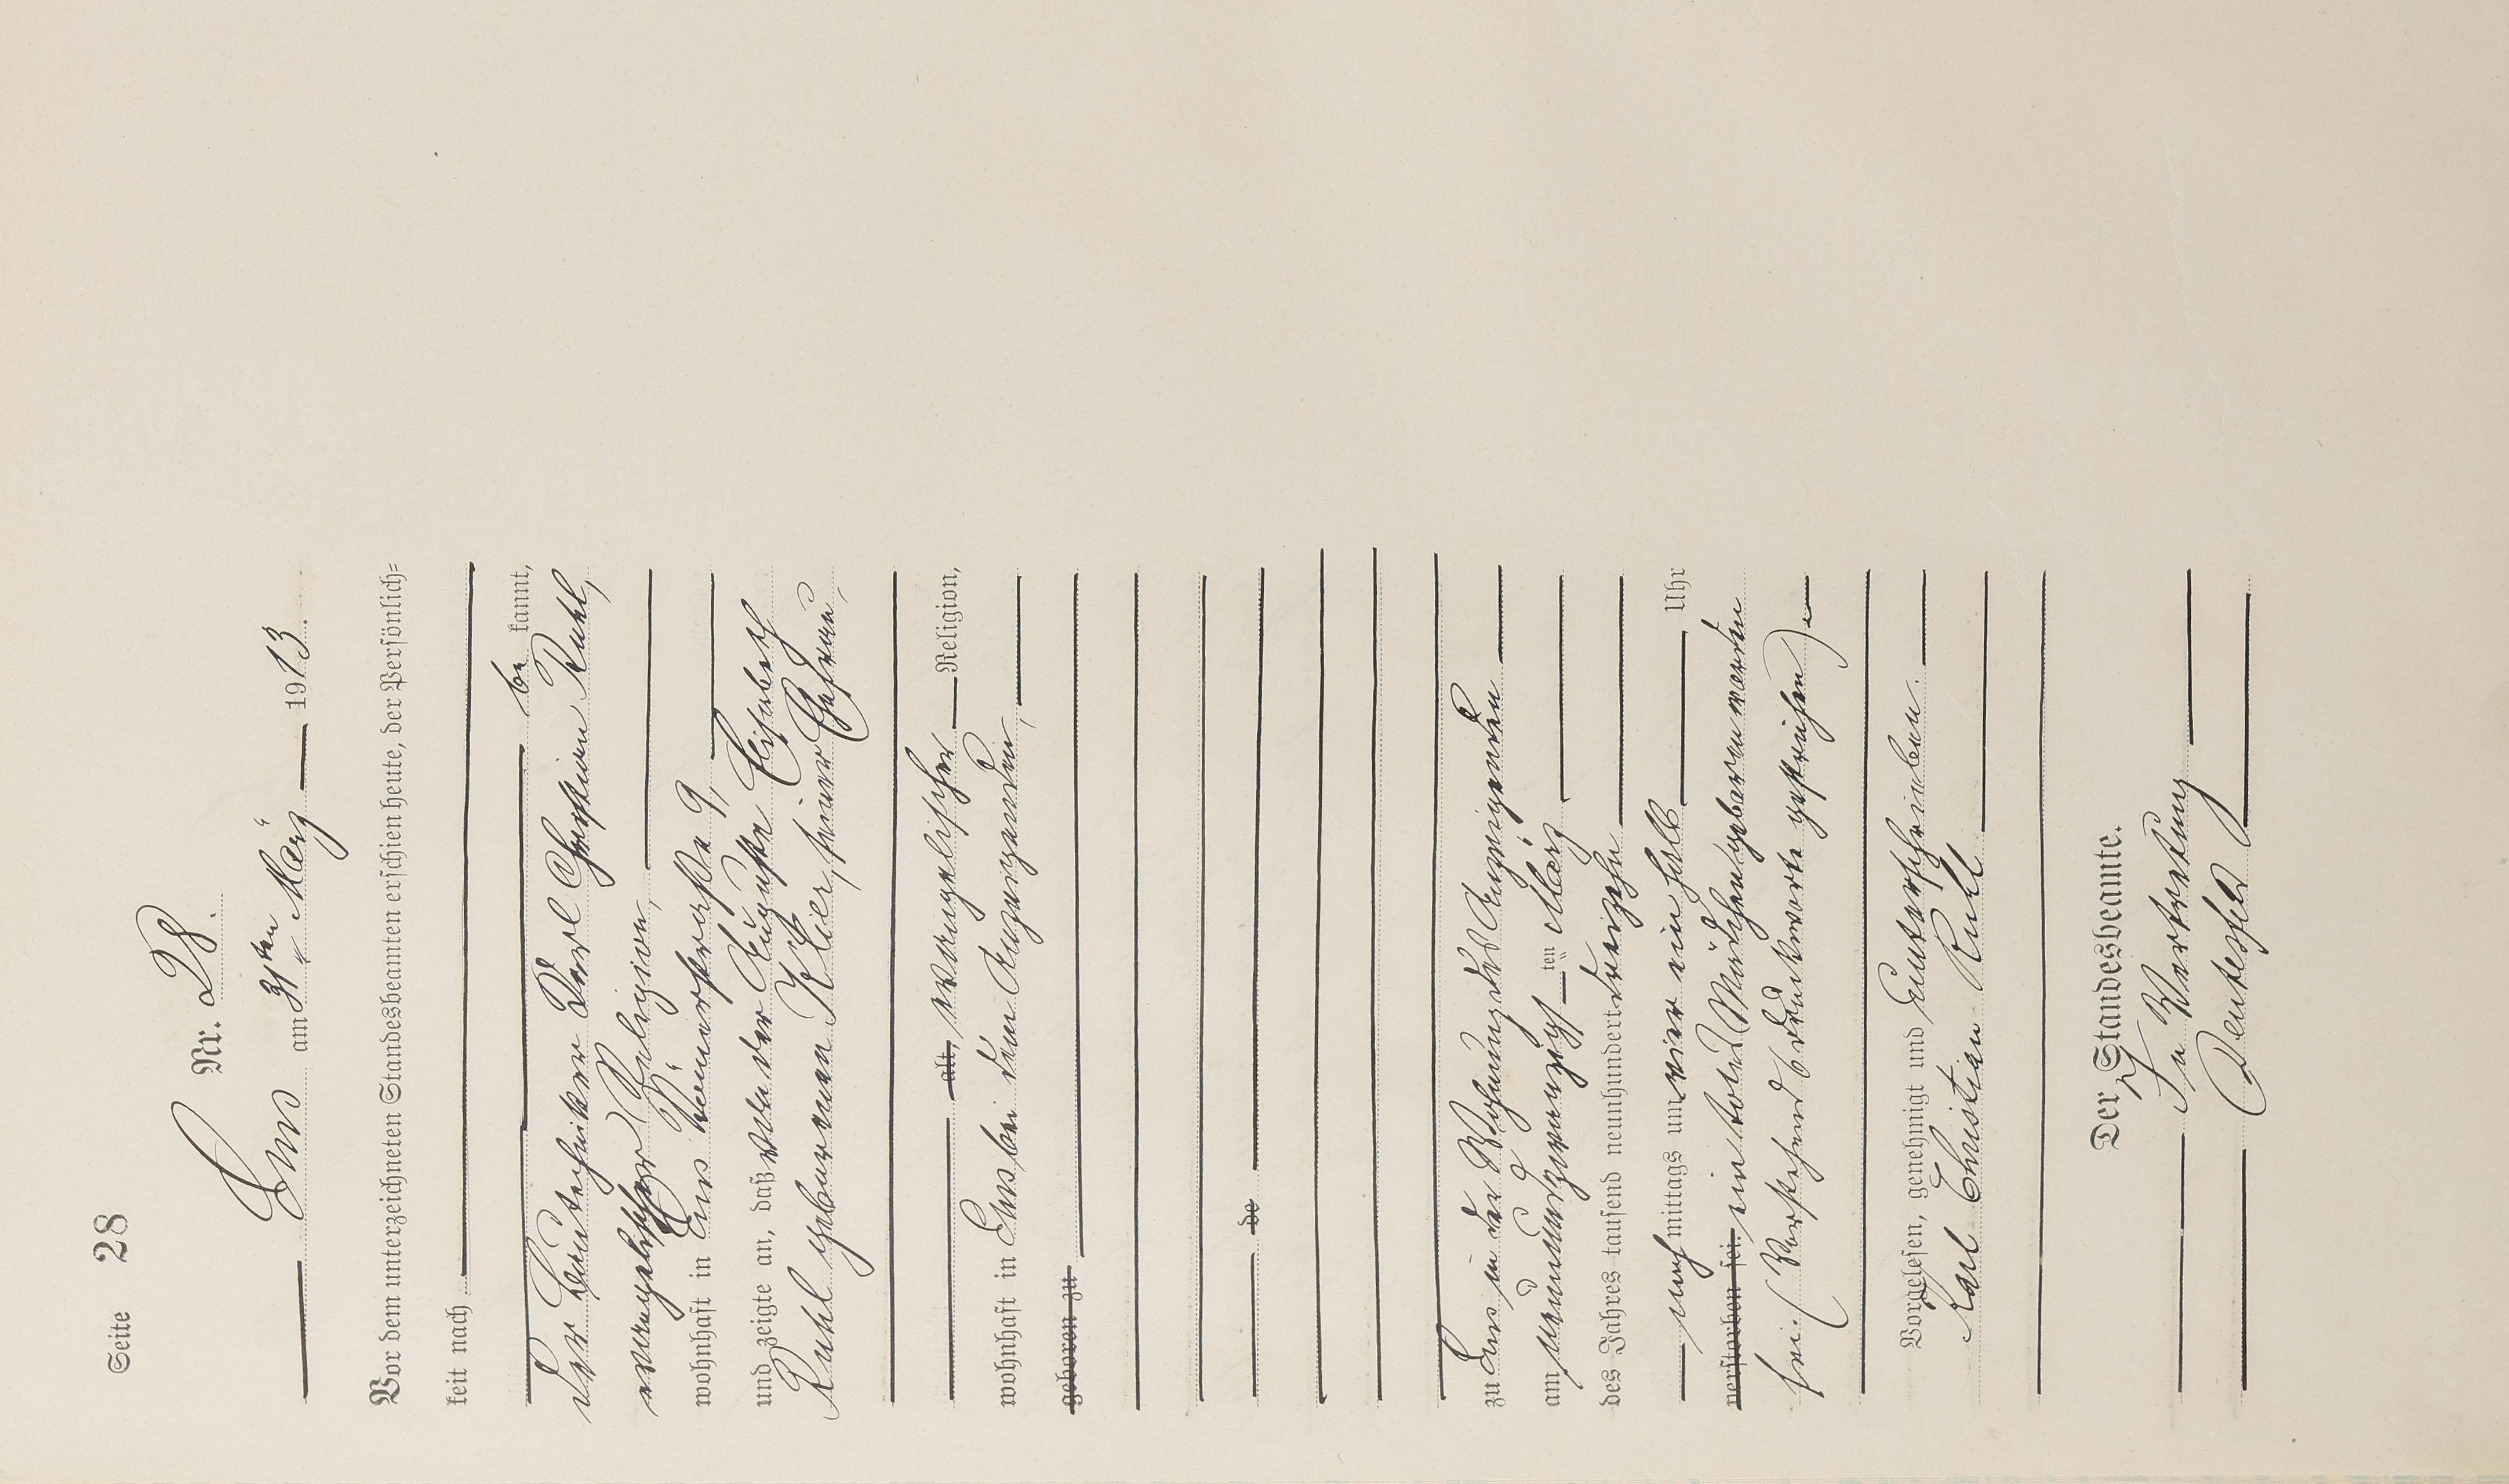 Seite 28
Nr. 28.
Ems am 31ten März 1913.
Vor dem unterzeichneten Standesbeamten erschien heute, der Persönlich=
keit nach
be kannt,
der Bautechniker Karl Christian Ruhl,
evangelischer Religion,
wohnhaft in Ems Römerstraße 9,
und zeigte an, daß von der Auguste Elisabeth
Ruhl geborenen Klier, seiner Ehefrau,
alt, evangelischer Religion,
wohnhaft in Ems bei dem Anzeigenden,
geboren zu
de
zu Ems in der Wohnung des Anzeigenden
am neunundzwanzigsten März
des Jahres tausend neunhundert dreizehn
nachmittags um vier ein halb Uhr
verstorben sei. ein totes Mädchen geboren worden
sei. (Vorstehend 6 Druckworte gestrichen)
Vorgelesen, genehmigt und unterschrieben.
Karl Christian Ruhl
Der Standesbeamte.
In Vertretung